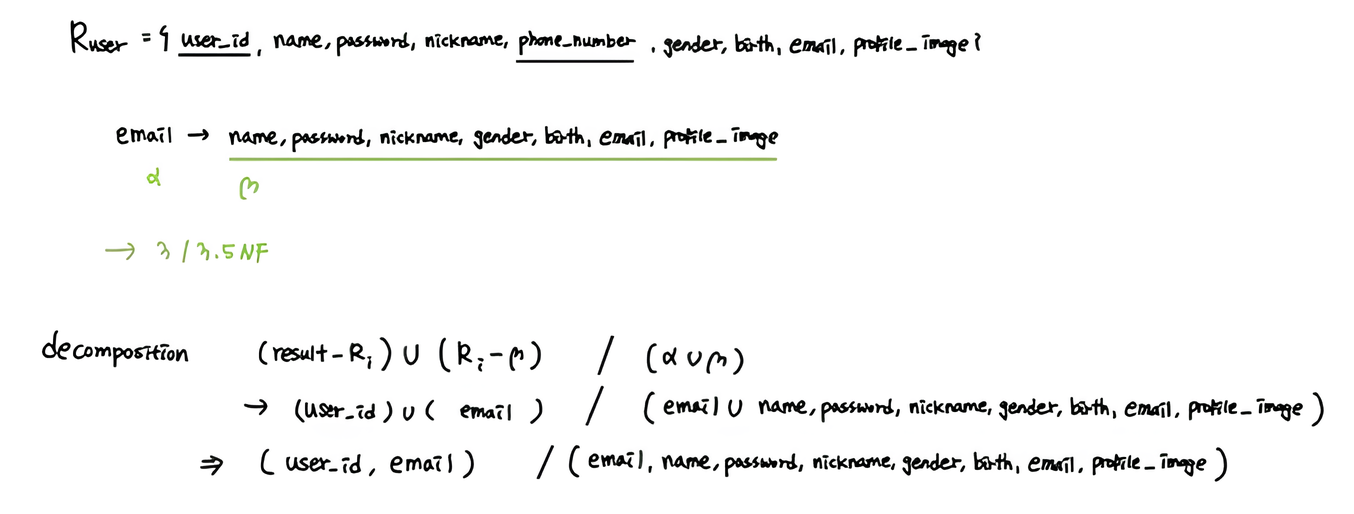 Ruser = { user_id, name, password, nickname, phone_number, gender, birth, email, profile_image }
email → name, password, nickname, gender, birth, email, profile_image
α β
→ 3/3.5NF
decomposition (result-Ri) ∪ (Ri-β) / (α∪β)
→ (user_id) ∪ ( email ) / ( email ∪ name, password, nickname, gender, birth, email, profile_image )
⇒ ( user_id, email ) / ( email, name, password, nickname, gender, birth, email, profile_image )